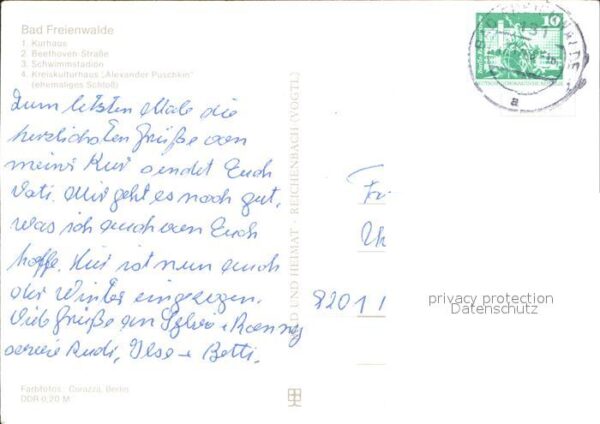 Bad Freienwalde
1. Kurhaus
2. Beethoven-Straße
3. Schwimmstadion
4. Kreiskulturhaus „Alexander Puschkin"
(ehemaliges Schloß)
Zum letzten Male die
herzlichsten Grüße von
meiner Kur sendet Euch
Vati. Mir geht es noch gut,
was ich auch von Euch
hoffe. Hier ist nun auch
der Winter eingezogen.
Viele Grüße an Sylvia + Ronny
sowie Rudi, Ilse + Betti.
Farbfotos: Corazza, Berlin
DDR 0,20 M
BILD UND HEIMAT · REICHENBACH (VOGTL)
10
Fr.
8201
privacy protection
Datenschutz